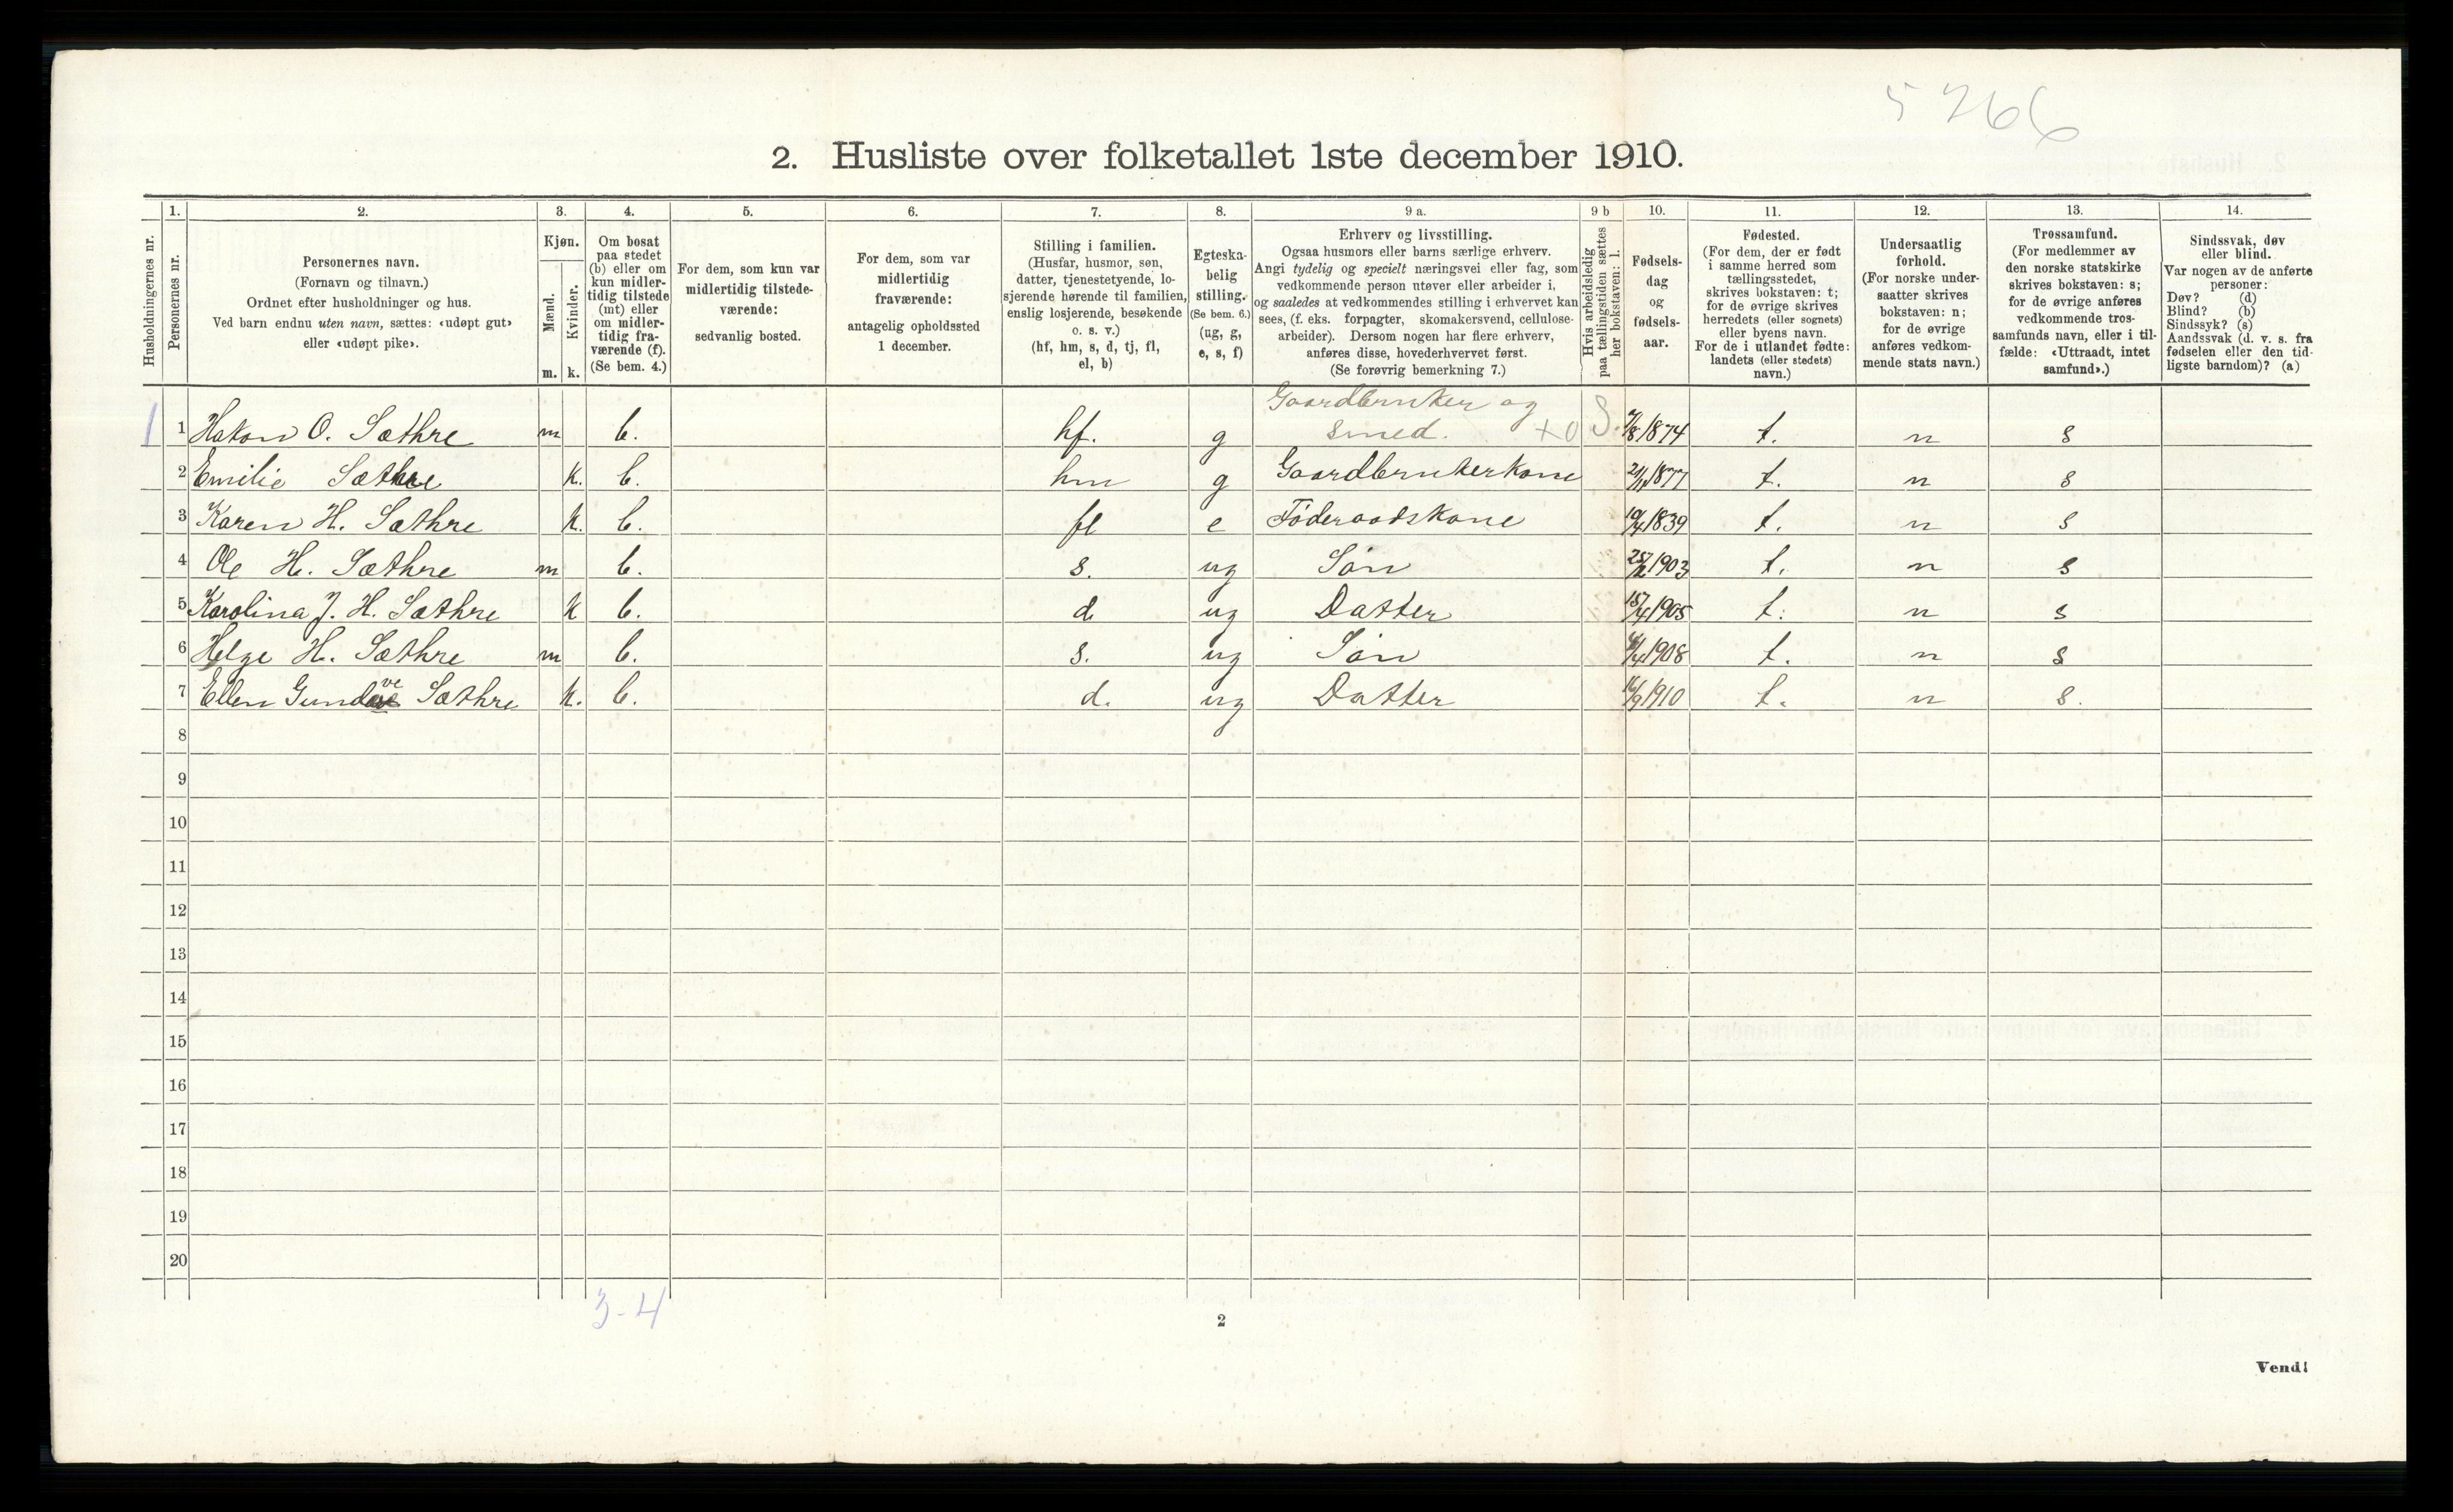 5266
2. Husliste over folketallet 1ste december 1910.
Husholdningernes nr.
1.
Personernes nr.
2.
Personernes navn.
(Fornavn og tilnavn.)
Ordnet efter husholdninger og hus.
Ved barn endnu uten navn, sættes: «udøpt gut»
eller «udøpt pike».
3.
Kjøn.
Mænd.
Kvinder.
m. k.
4.
Om bosat
paa stedet
(b) eller om
kun midler-
tidig tilstede
(mt) eller
om midler-
tidig fra-
værende (f).
(Se bem. 4.)
5.
For dem, som kun var
midlertidig tilstede-
værende:
sedvanlig bosted.
6.
For dem, som var
midlertidig
fraværende:
antagelig opholdssted
1 december.
7.
Stilling i familien.
(Husfar, husmor, søn,
datter, tjenestetyende, lo-
sjerende hørende til familien,
enslig losjerende, besøkende
o. s. v.)
(hf, hm, s, d, tj, fl,
el, b)
8.
Egteska-
belig
stilling.
(Se bem. 6.)
(ug, g,
e, s, f)
9 a.
Erhverv og livsstilling.
Ogsaa husmors eller barns særlige erhverv.
Angi tydelig og specielt næringsvei eller fag, som
vedkommende person utøver eller arbeider i,
og saaledes at vedkommendes stilling i erhvervet kan
sees, (f. eks. forpagter, skomakersvend, cellulose-
arbeider). Dersom nogen har flere erhverv,
anføres disse, hovederhvervet først.
(Se forøvrig bemerkning 7.)
9 b
Hvis arbeidsledig
paa tællingstiden sættes
her bokstaven: l.
10.
Fødsels-
dag
og
fødsels-
aar.
11.
Fødested.
(For dem, der er født
i samme herred som
tællingsstedet,
skrives bokstaven: t;
for de øvrige skrives
herredets (eller sognets)
eller byens navn.
For de i utlandet fødte:
landets (eller stedets)
navn.)
12.
Undersaatlig
forhold.
(For norske under-
saatter skrives
bokstaven: n;
for de øvrige
anføres vedkom-
mende stats navn.)
13.
Trossamfund.
(For medlemmer av
den norske statskirke
skrives bokstaven: s;
for de øvrige anføres
vedkommende tros-
samfunds navn, eller i til-
fælde: «Uttraadt, intet
samfund».)
14.
Sindssvak, døv
eller blind.
Var nogen av de anførte
personer:
Døv? (d)
Blind? (b)
Sindssyk? (s)
Aandssvak (d. v. s. fra
fødselen eller den tid-
ligste barndom)? (a)
Gaardbruker og
1 1 Hakon O. Sæthre m b. hf. g smed. +0 S. 1874 t. n s
2 Emilie Sæthre k. b. hm g Gaardbrukerkone 21/11 1877 t. n s
3 Karen H. Sæthre k. b. fl e Föderaadskone 19/4 1839 t. n s
4 Ole H. Sæthre m b. s. ug Sön 1903 t. n s
5 Karolina J. H. Sæthre k b. d. ug Datter 15/4 1905 t. n s
6 Helge H. Sæthre m b. s. ug Sön 1908 t. n s
7 Ellen Gundve Sæthre k. b. d. ug Datter 16/9 1910 t. n s.
8
9
10
11
12
13
14
15
16
17
18
19
20
3-4
2
Vend!